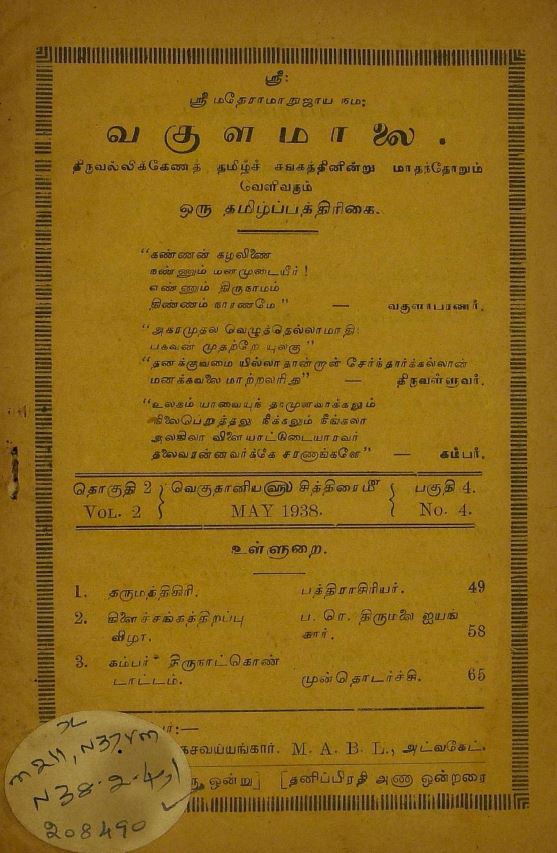 ஸ்ரீ:
ஸ்ரீ மதேராமாநுஜாய நம:
வகுளமாலை.
திருவல்லிக்கேணித் தமிழ்ச் சங்கத்தினின்று மாதந்தோறும்
வெளிவரும்
ஒரு தமிழ்ப்பத்திரிகை.
"கண்ணன் கழலிணை
நண்ணும் மனமுடையீர்!
எண்ணும் திருநாமம்
திண்ணம் நாரணமே" — வகுளாபரணர்.
"அகரமுதல வெழுத்தெல்லாமாதி:
பகவன் முதற்றே யுலகு"
"தனக்குவமை யில்லாதான்றாள் சேர்ந்தார்க்கல்லான்
மனக்கவலை மாற்றலரிது" — திருவள்ளுவர்.
"உலகம் யாவையுந் தாமுளவாக்கலும்
நிலைபெறுத்தலு நீக்கலும் நீங்கலா
அலகிலா விளையாட்டுடையாரவர்
தலைவரன்னவர்க்கே சரணங்களே" — கம்பர்.
தொகுதி 2 } வெகுதானியளு சித்திரைமீ { பகுதி 4.
VOL. 2 } MAY 1938. { No. 4.
உள்ளுறை.
1. தருமத்திகிரி. பத்திராசிரியர். 49
2. கிளைச்சங்கத்திறப்பு ப. ரெ. திருமலை ஐயங்
விழா. கார். 58
3. கம்பர் திருநாட்கொண்
டாட்டம். முன்தொடர்ச்சி. 65
சவய்யங்கார். M. A. B. L., அட்வகேட்.
ஒன்று] [தனிப்பிரதி அணா ஒன்றரை
N38.2.4
208490